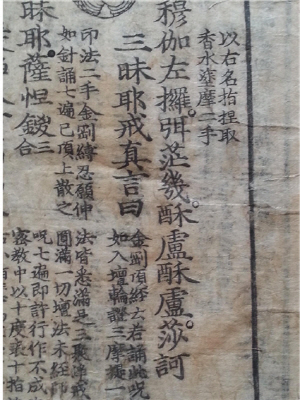 以右名指捏取
香水塗摩二手
穆伽左攞弭茫幾酥盧酥盧莎訶
三昧耶戒真言曰
金剛頂經云若誦此呪
如入壇輪證三摩提一
法皆悉滿足三聚淨戒
圓滿一切壇法未經師
呪七遍即許行作不成
密教中以十度表十指
昧耶薩怛鑁三合
印法二手金剛縛忍願伸
如針誦七遍已頂上散之